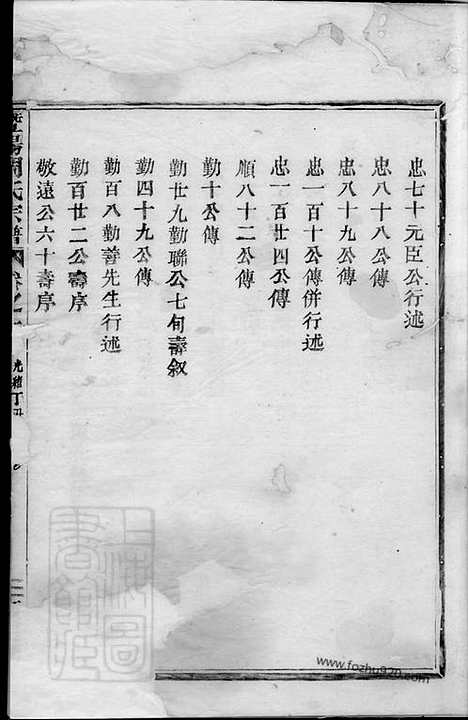 忠七十元臣公行述
忠八十八公傳
忠八十九公傳
忠一百十公傳併行述
忠一百廿四公傳
順八十二公傳
勤十公傳
勤廿九勤聯公七旬壽叙
勤四十九公傳
勤百八勤善先生行述
勤百廿二公壽序
敬遠公六十壽序
暨陽周氏宗譜 卷之一 光緒丁丑
上海圖書館藏
www.fozhu920.com